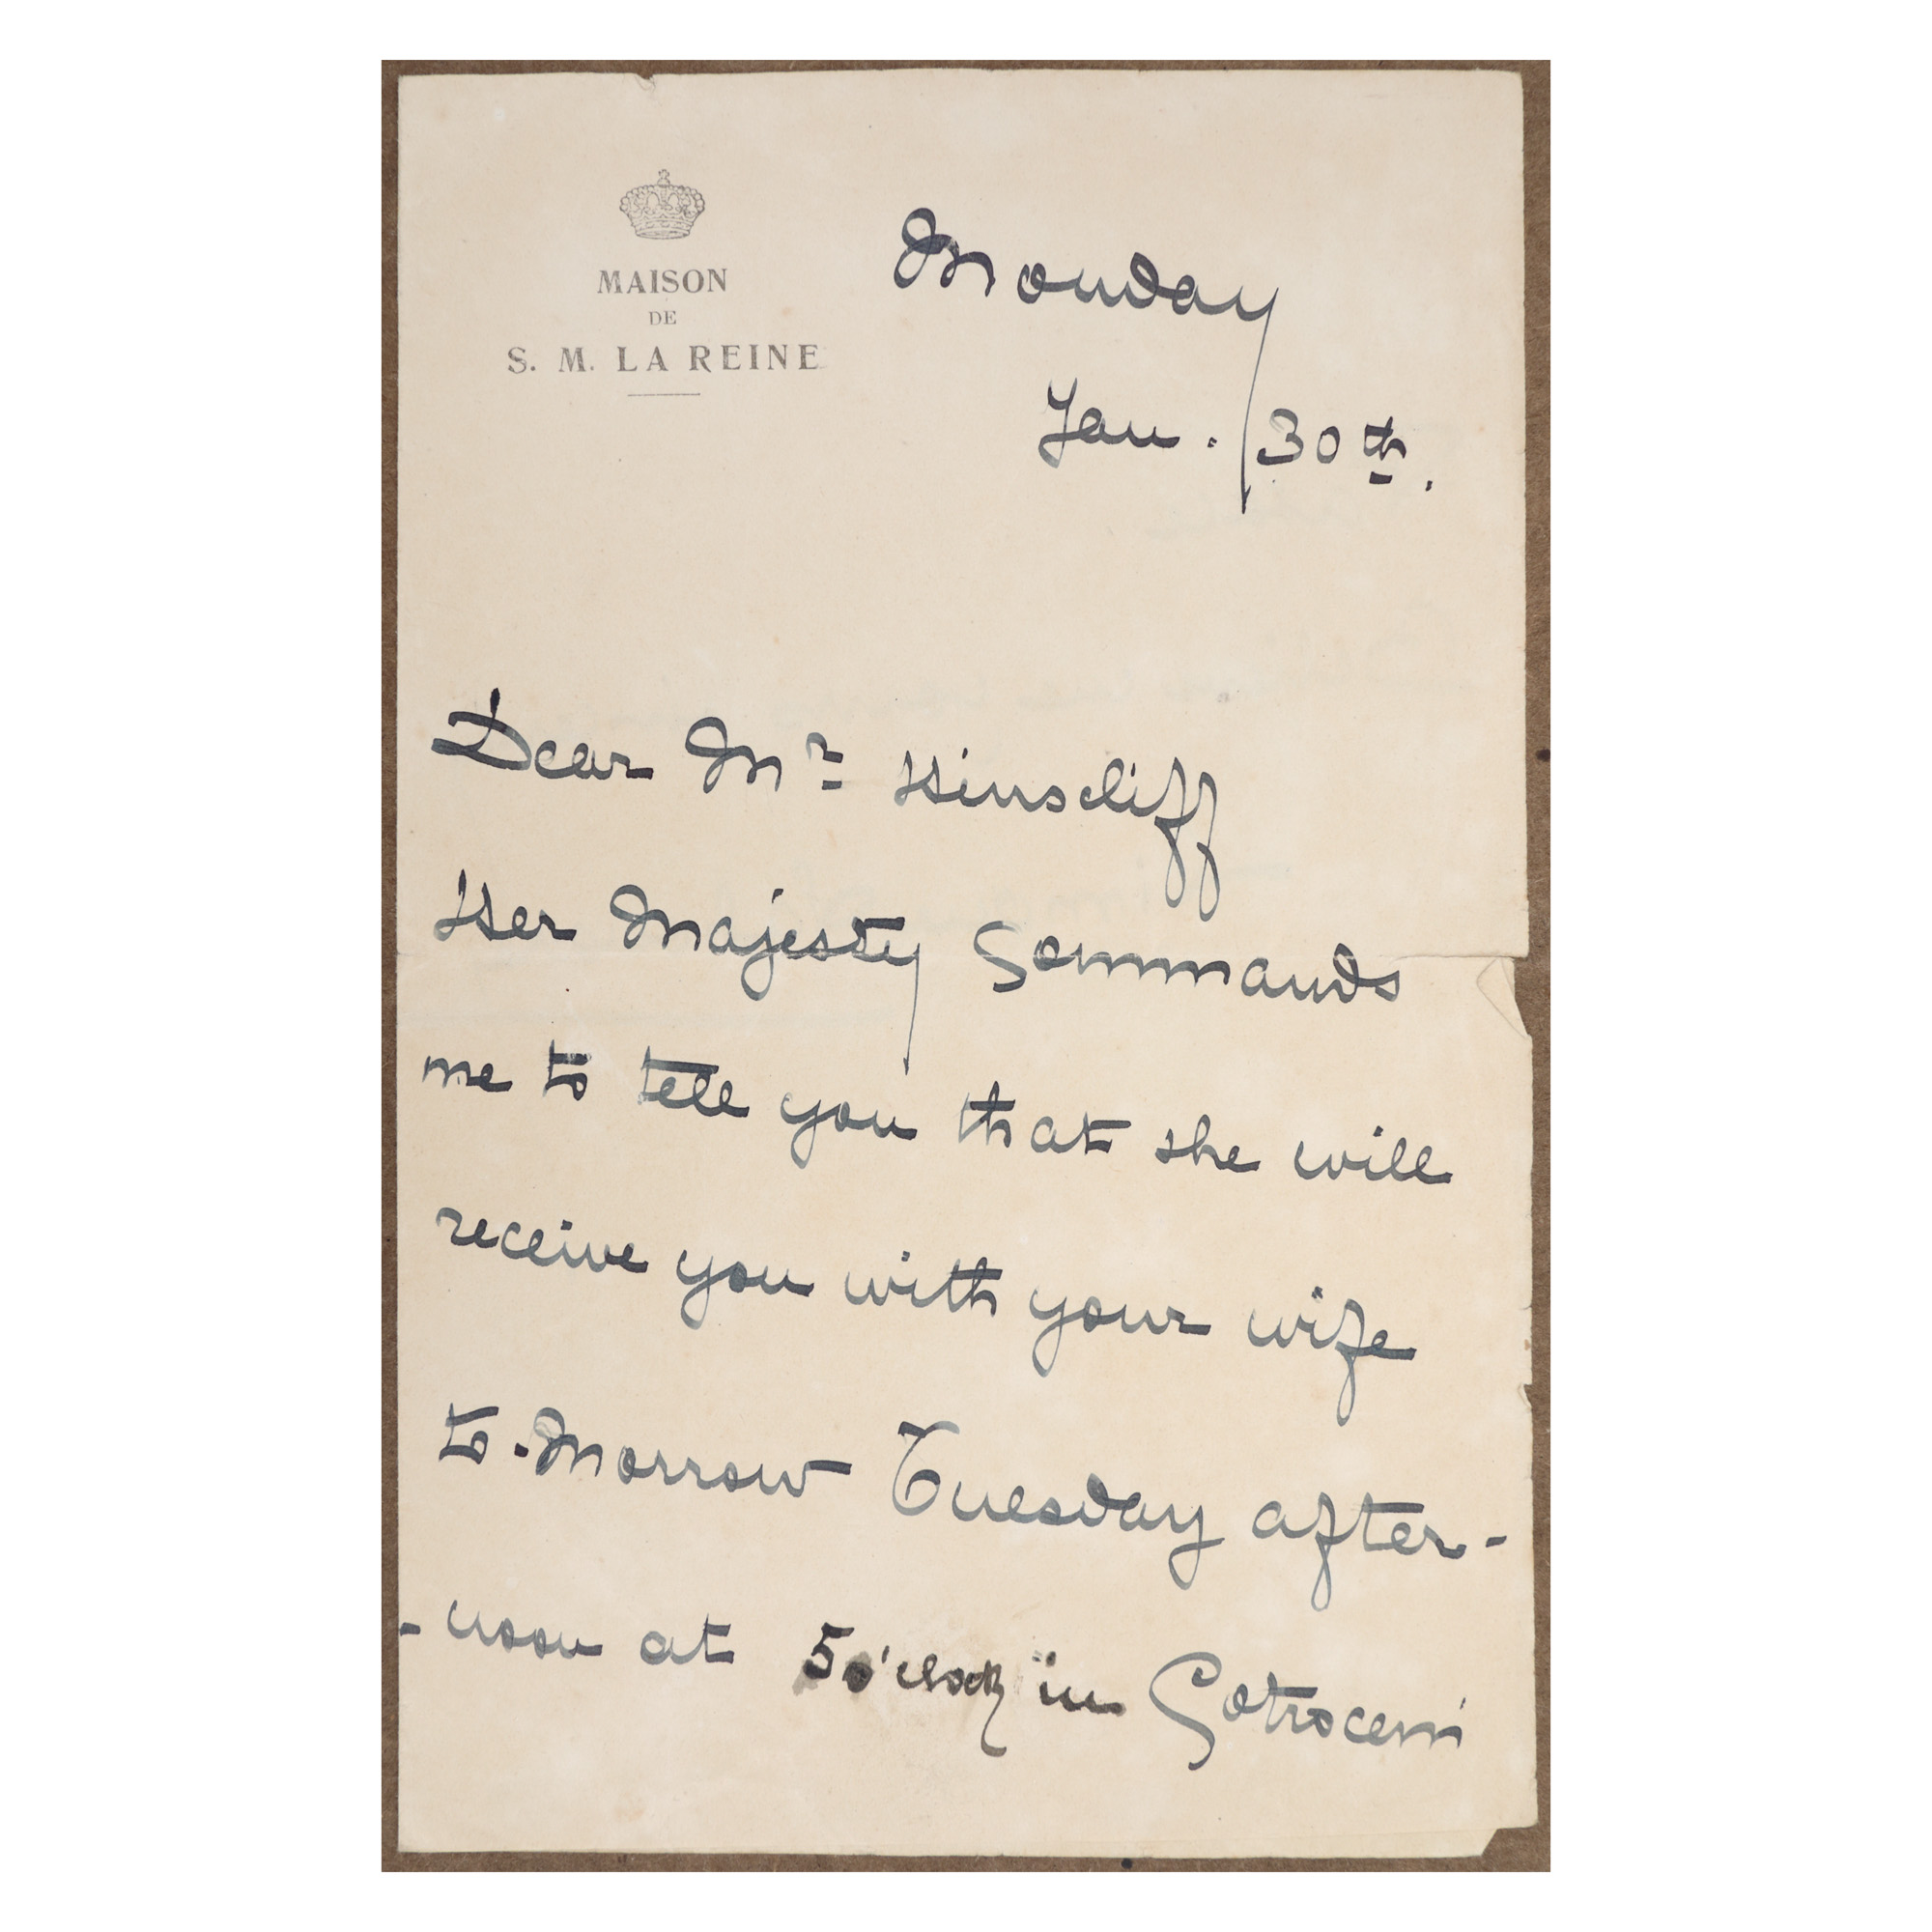 MAISON
DE
S. M. LA REINE
Monday
Jan. 30th.
Dear Mr Hinscliff
Her Majesty Commands
me to tell you that she will
receive you with your wife
to-Morrow Tuesday after-
-noon at 5 o'clock in Cotroceni